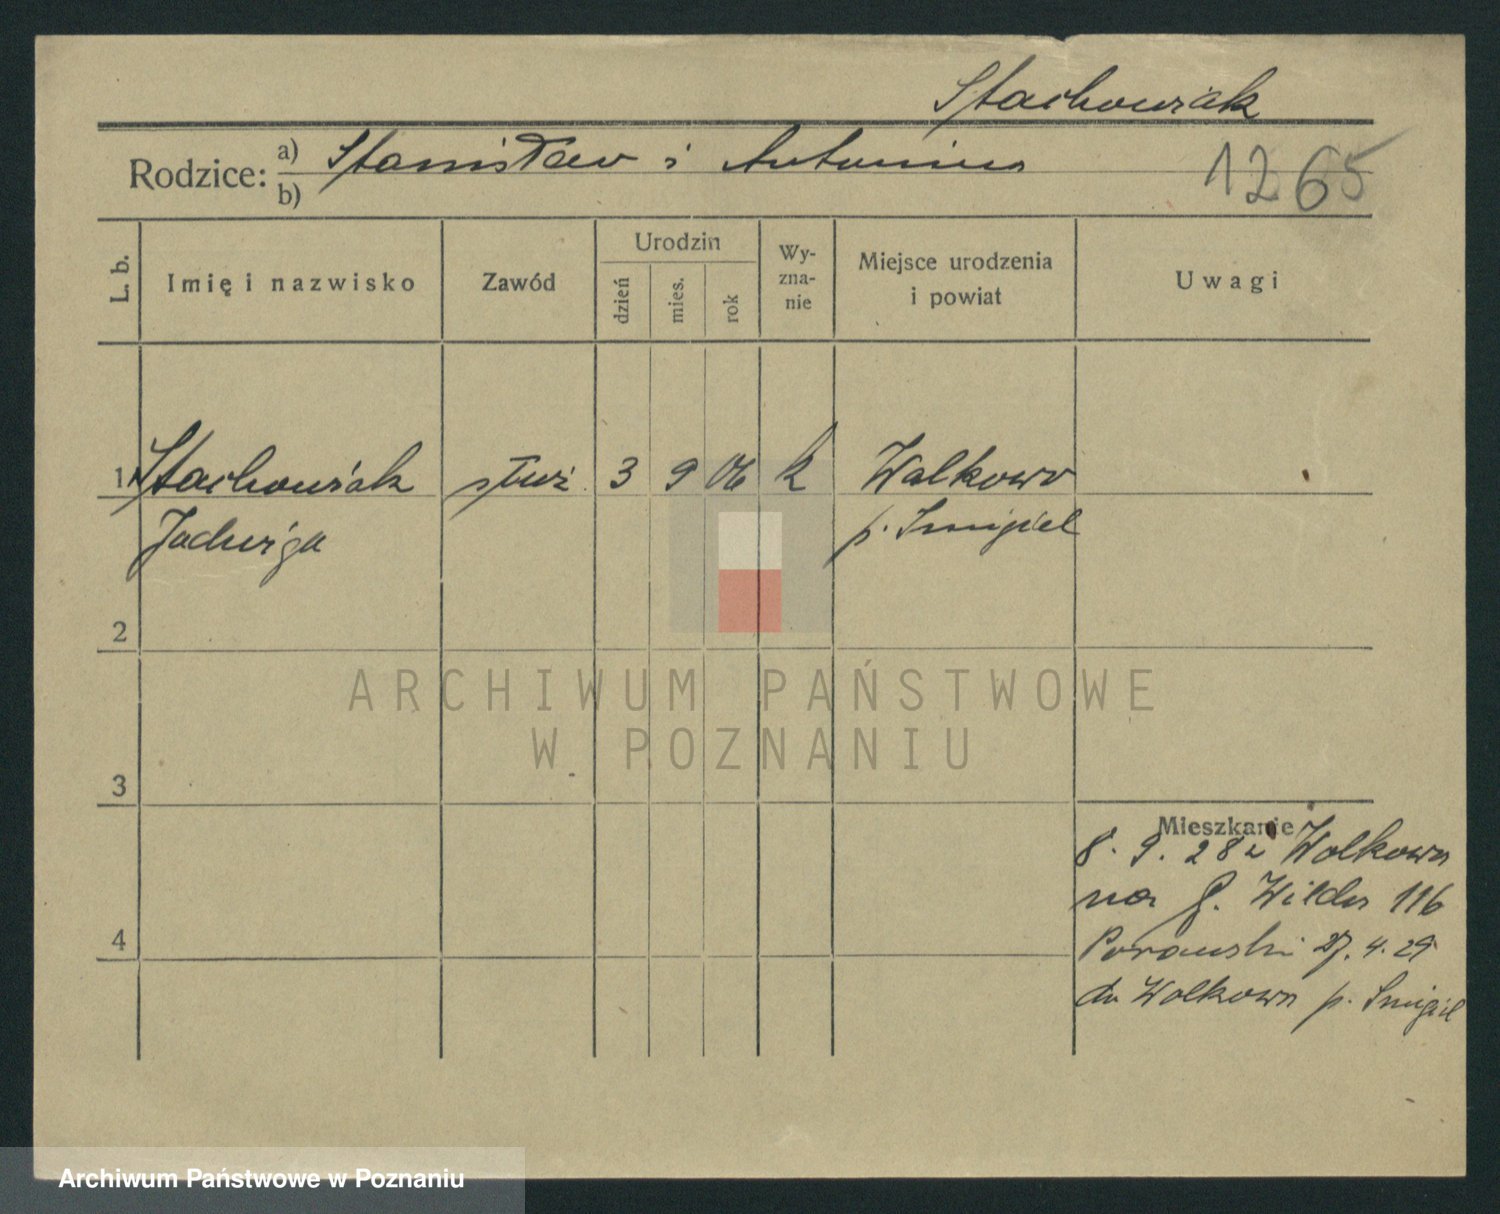 Stachowiak
Rodzice: a) Stanisław i Antonina
b)
1265
L. b.
Imię i nazwisko
Zawód
Urodzin
dzień
mies.
rok
Wy-
zna-
nie
Miejsce urodzenia
i powiat
Uwagi
1 Stachowiak służ 3 9 06 k Walkowo
Jadwiga p. Śmigiel
2
3
4
Mieszkanie
8. 9. 28 z Wolkowa
na G. Wilda 116
27. 4. 29
do Wolkowa p. Śmigiel
ARCHIWUM PAŃSTWOWE
W POZNANIU
Archiwum Państwowe w Poznaniu